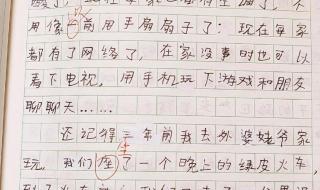 用像一前用手扇扇子了；现在每家
都有了网络了，在家没事时也可以
看下电视，用手机玩下游戏和朋友
聊聊天……
还记得三年前我去外婆姥爷家
坐
玩，我们座了一个晚上的绿皮火车，